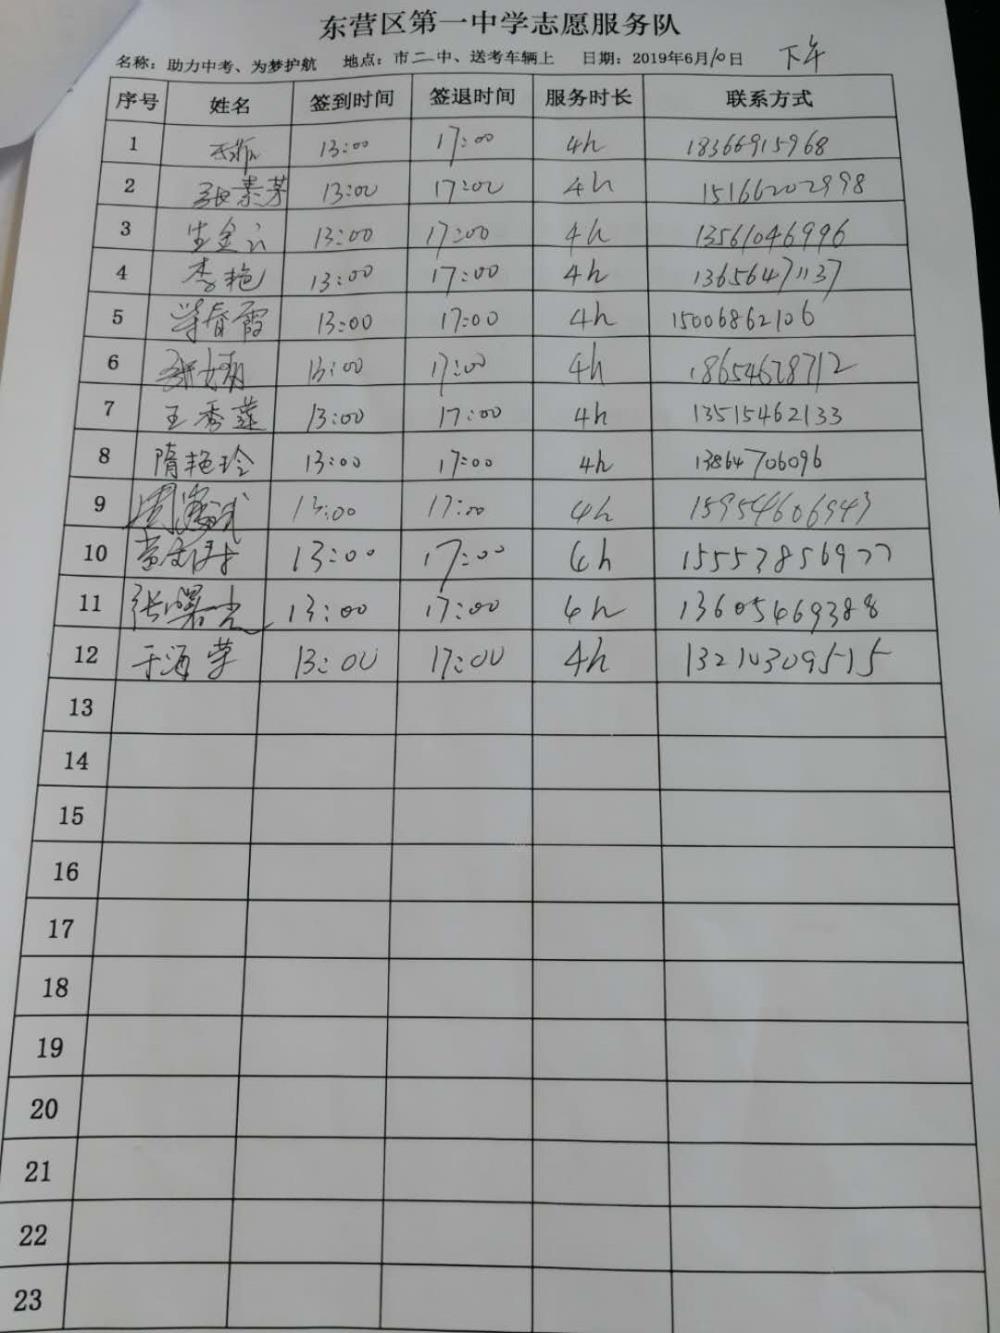 东营区第一中学志愿服务队
名称：助力中考、为梦护航 地点：市二中、送考车辆上 日期：2019年6月10日 下午
序号 姓名 签到时间 签退时间 服务时长 联系方式
1 13:00 17:00 4h 18366915968
2 张素芳 13:00 17:00 4h 15166202998
3 生金云 13:00 17:00 4h 13561046996
4 李艳 13:00 17:00 4h 13656471137
5 春霞 13:00 17:00 4h 15006862106
6 13:00 17:00 4h 18654628712
7 王秀莲 13:00 17:00 4h 13515462133
8 隋艳玲 13:00 17:00 4h 13864706096
9 周 13:00 17:00 4h 15954606943
10 13:00 17:00 4h
11 张曙光 13:00 17:00 4h 13605469388
12 于海荣 13:00 17:00 4h 13210309515
13
14
15
16
17
18
19
20
21
22
23